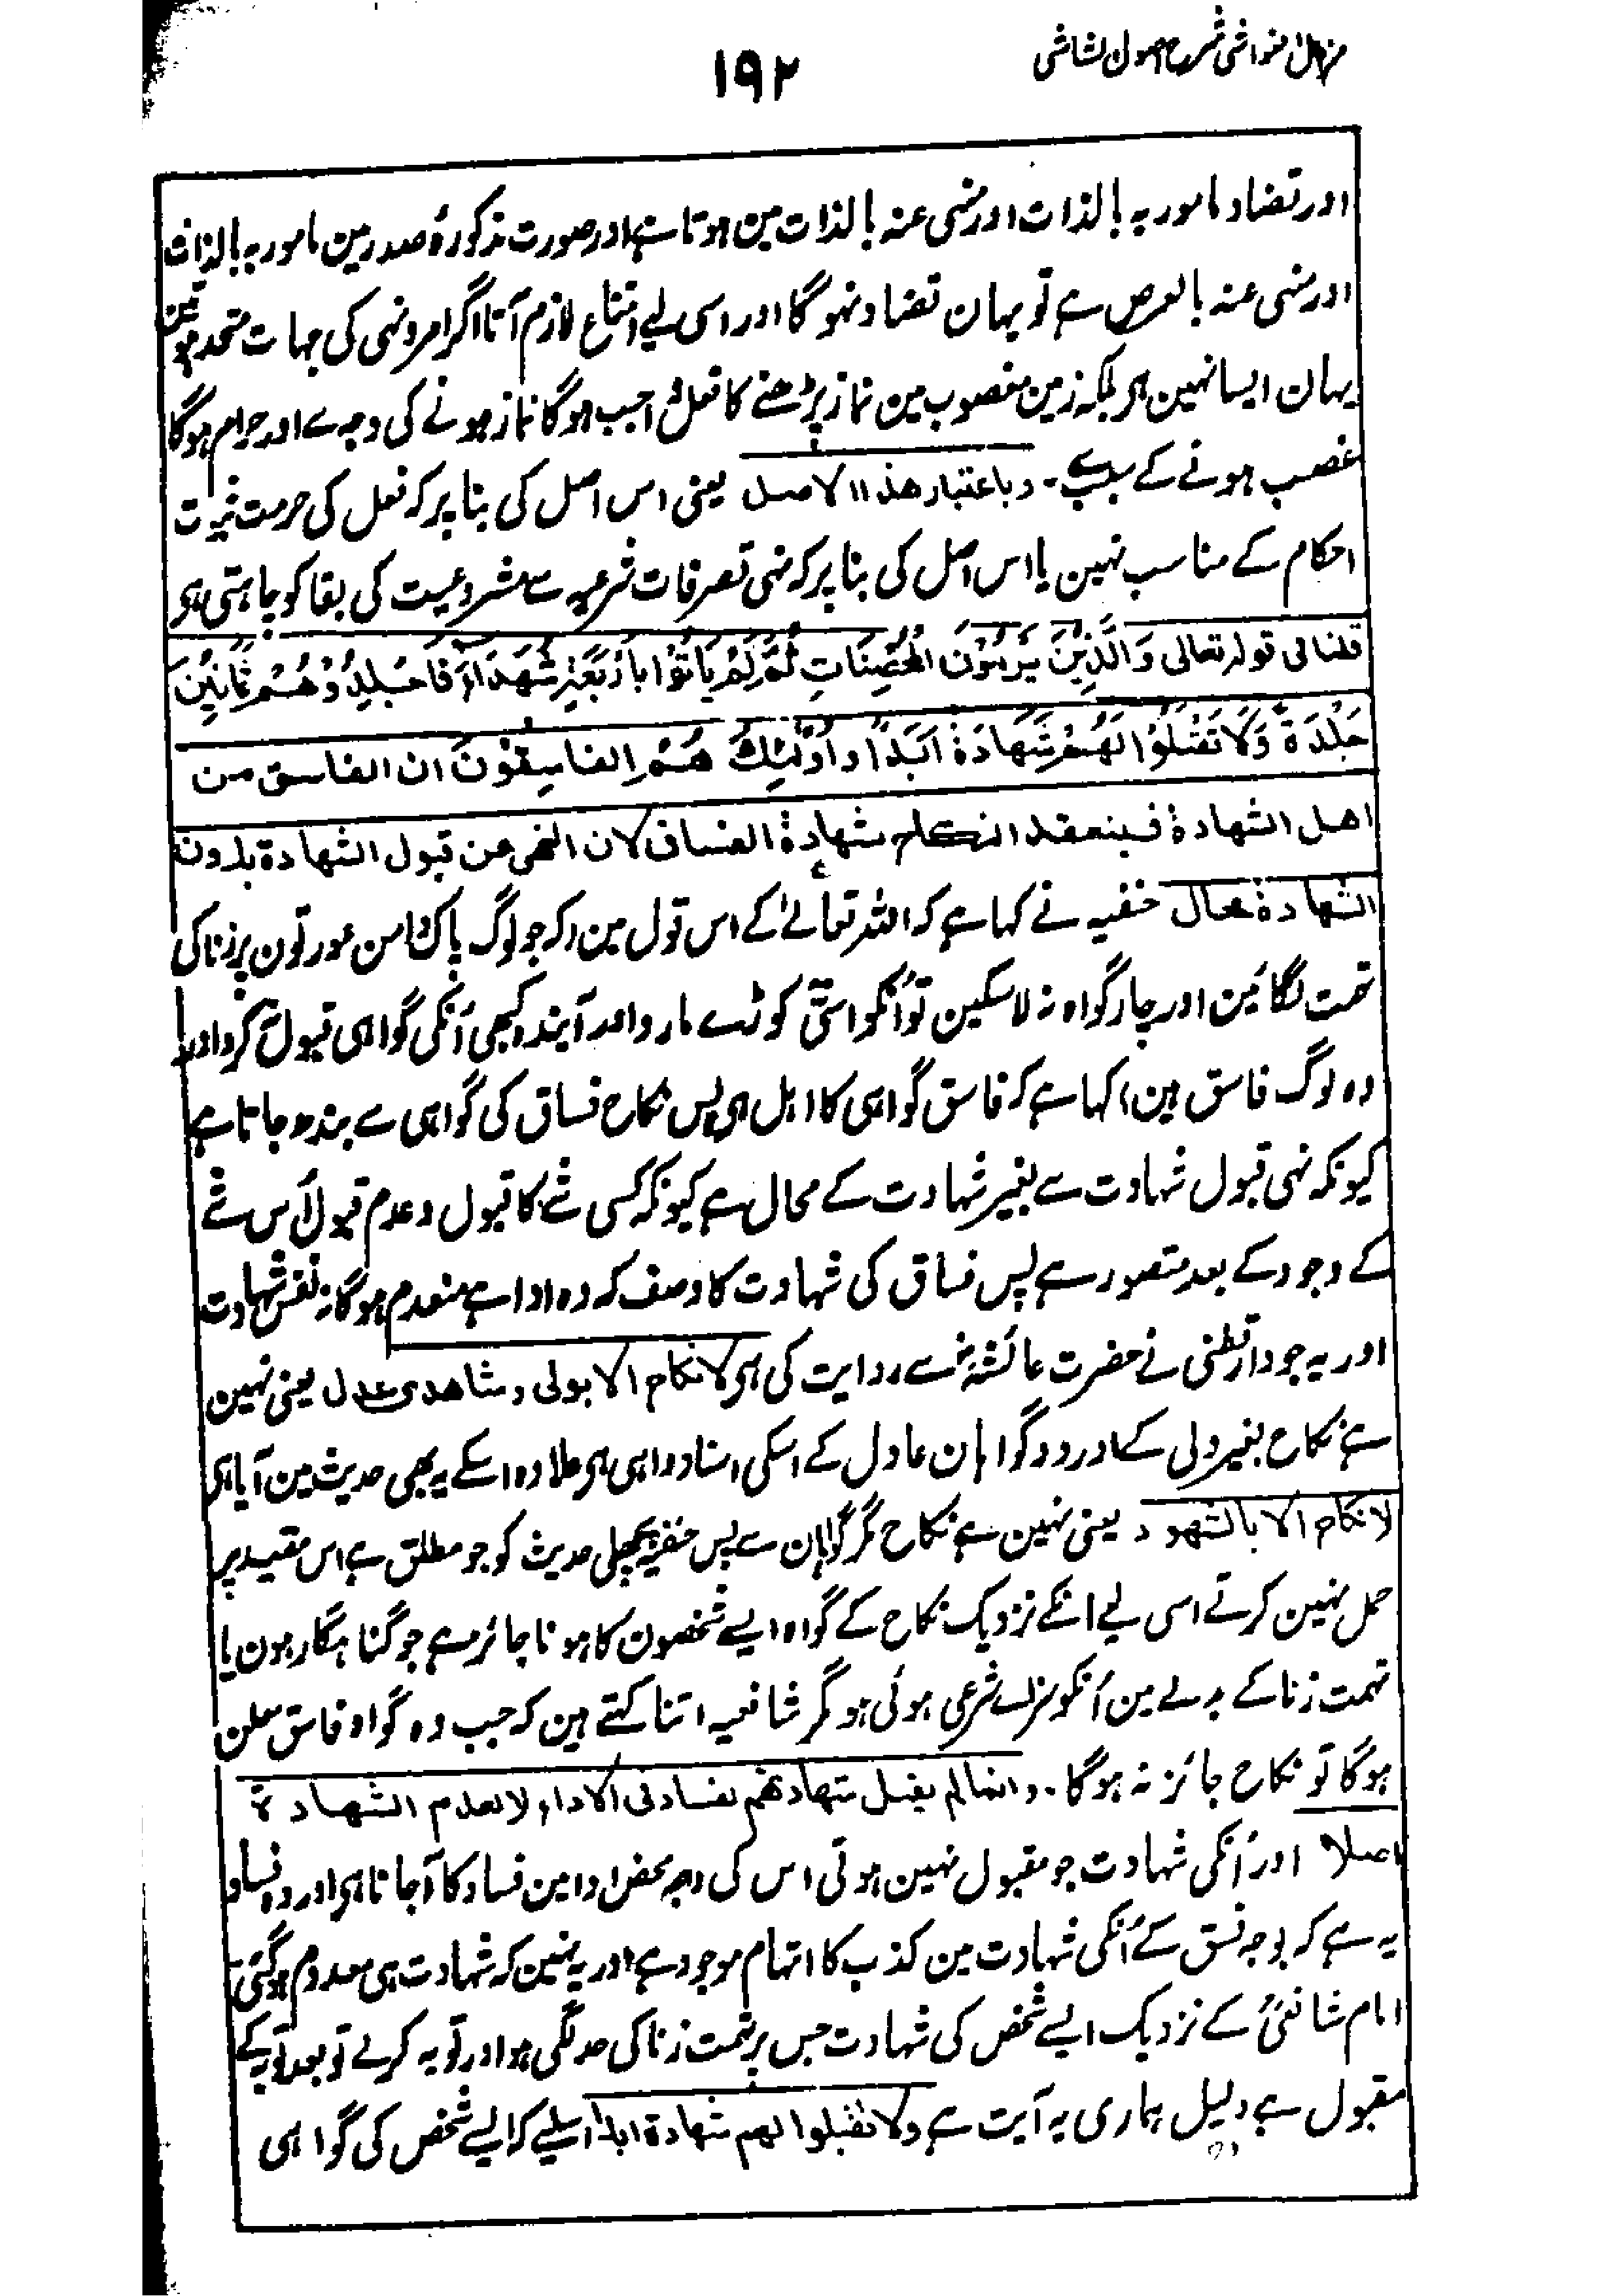 مزیل الغواشی شرح اصول الشاشی
۱۹۲
اور تضاد مامور بہ بالذات اور منہی عنہ بالذات مین ہوتا ہے اور صورت مذکورۂ صدر مین مامور بہ بالذات
اور منہی عنہ بالعرض ہے تو یہان تضاد نہوگا اور اسی لیے امتناع لازم آتا اگر امر و نہی کی جہات متحد ہوتین
یہان ایسا نہین ہی بلکہ زمین مغصوب مین نماز پڑھنے کا فعل واجب ہوگا نماز ہونے کی وجہ سے اور حرام ہوگا
غصب ہونے کے سبب سے۔ وباعتبار ھذا الاصل یعنی اس اصل کی بنا پر کہ فعل کی حرمت ثبوت
احکام کے مناسب نہین یا اس اصل کی بنا پر کہ نہی تصرفات شرعیہ سے مشروعیت کی بقا کو چاہتی ہی
قلنا فی قولہ تعالی وَالَّذِیْنَ یَرْمُوْنَ الْمُحْصَنَاتِ ثُمَّ لَمْ یَاتُوْا بِاَرْبَعَۃِ شُهَدَآءَ فَاجْلِدُوْهُمْ ثَمَانِیْنَ
جَلْدَةً وَّلَا تَقْبَلُوْا لَهُمْ شَهَادَةً اَبَدًا وَاُولٰٓئِكَ هُمُ الفَاسِقُوْنَ ان الفاسق من
اھل الشهادة فینعقد النکاح بشهادة الفساق لان النھی عن قبول الشهادة بدون
الشهادة محال حنفیہ نے کہا ہے کہ اللہ تعالےٰ کے اس قول مین (کہ جو لوگ پاک دامن عورتون پر زنا کی
تہمت لگائین اور چار گواہ نہ لا سکین تو اُنکو اسّی کوڑے مارو اور آیندہ کبھی اُنکی گواہی قبول نکرو اور
وہ لوگ فاسق ہین) کہا ہے کہ فاسق گواہی کا اہل ہی پس نکاح فساق کی گواہی سے بندھ جاتا ہے
کیونکہ نہی قبول شہادت سے بغیر شہادت کے محال ہے کیونکہ کسی شے کا قبول و عدم قبول اُس شے
کے وجود کے بعد متصور ہے پس فساق کی شہادت کا وصف کہ وہ ادا ہے منعدم ہوگا نہ نفس شہادت
اور یہ جو دارقطنی نے حضرت عائشہؓ سے روایت کی ہی لا نکاح الا بولی وشاھدی عدل یعنی نہین
ہے نکاح بغیر ولی کے اور دو گواہان عادل کے اسکی اسناد واہی ہی علاوہ اسکے یہ بھی حدیث مین آیا ہی
لا نکاح الا بالشهود یعنی نہین ہے نکاح مگر گواہان سے پس حنفیہ پچھلی حدیث کو جو مطلق ہے اس مقید پر
حمل نہین کرتے اسی لیے انکے نزدیک نکاح کے گواہ ایسے شخصون کا ہونا جائز ہے جو گناہگار ہون یا
تہمت زنا کے بدلے مین اُنکو سزاے شرعی ہوئی ہو مگر شافعیہ اتنا کہتے ہین کہ جب وہ گواہ فاسق معلن
ہوگا تو نکاح جائز نہ ہوگا۔ وانما لم یقبل شهادتهم لفساد فی الاداء لا لعدم الشهادة
اصلا اور اُنکی شہادت جو مقبول نہین ہوتی اس کی وجہ محض ادا مین فساد کا آجانا ہی اور وہ فساد
یہ ہے کہ بوجہ فسق کے اُنکی شہادت مین کذب کا اتہام موجود ہے اور یہ نہین کہ شہادت ہی معدوم ہوگئی
امام شافعیؒ کے نزدیک ایسے شخص کی شہادت جس پر تہمت زنا کی حد لگی ہو اور توبہ کر لے تو بعد توبہ کے
مقبول ہے دلیل ہماری یہ آیت ہے ولا تقبلوا لهم شهادة ابدا اسلیے کہ ایسے شخص کی گواہی